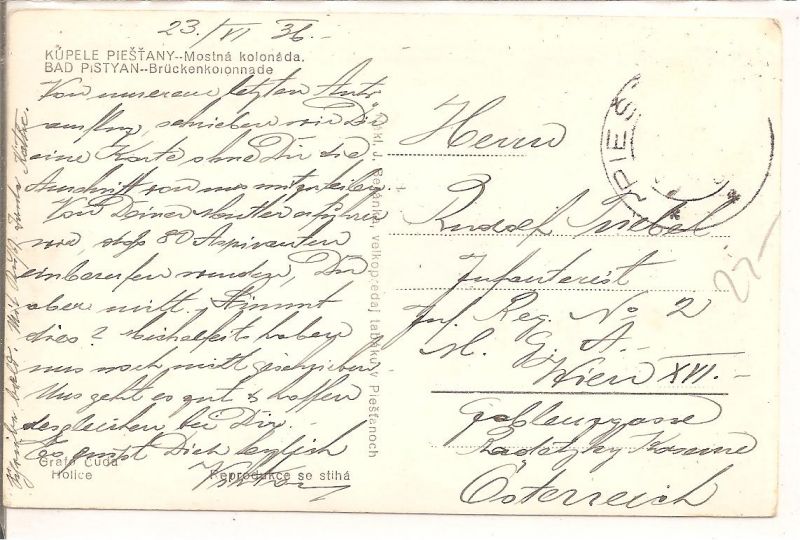 23./VI 36.-
KÚPELE PIEŠŤANY--Mostná kolonáda.
BAD PISTYAN--Brückenkolonnade
Von unserem letzten Auto
ausflug, schrieben wir Dir
eine Karte ohne Dir die
Anschrift von uns mitzuteilen.
Von Deiner Mutter erfuhren
wir, dass 80 Aspiranten
einberufen wurden, Du
aber nicht. Stimmt
dies?
uns noch nicht geschrieben
Uns geht es gut & hoffen
desgleichen bei Dir.
Es grüsst Dich herzlich
Viktor
Schreibe bald. Mit Gruß Tante
Grafo Čuda
Holíce
Reprodukce se stihá
Nákl. J. veľkopredaj tabáku v Piešťanoch
PIEŠ
Herrn
Rudolf
Infanterist
Inf. Reg. No 2
M. G. A.
Wien XVI.-
Gablenzgasse
Radetzky Kaserne
Österreich
27-